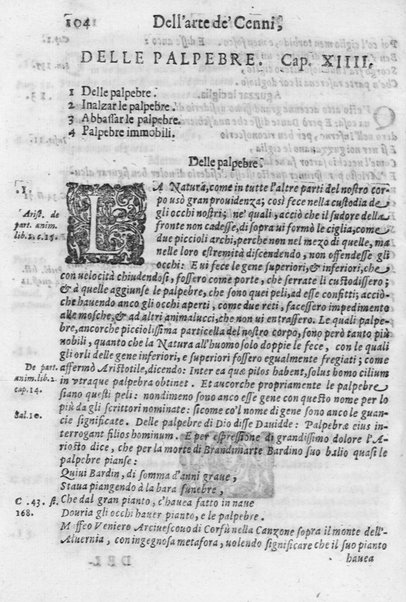 104 Dell'arte de' Cenni,
DELLE PALPEBRE. Cap. XIIII.
1 Delle palpebre.
2 Inalzar le palpebre.
3 Abbassar le palpebre.
4 Palpebre immobili.
Delle palpebre.
.1.
Arist. de part. anim. lib.2.c.15.
LA Natura, come in tutte l'altre parti del nostro cor-
po usò gran prouidenza; così fece nella custodia de
gli occhi nostri; ne' quali, acciò che il sudore della
fronte non cadesse, di sopra ui formò le ciglia, come
due piccioli archi, perche non nel mezo di quelle, ma
nelle loro estremità discendendo, non offendesse gli
occhi: E ui fece le gene superiori, & inferiori, che
con uelocità chiudendosi, fossero come porte, chè serrate li custodissero;
& à quelle aggiunse le palpebre, che sono quei peli, ad esse confitti; acciò-
che hauendo anco gli occhi aperti, come due reti, facessero impedimento
alle mosche, & ad altri animalucci, che non ui entrassero. Le quali palpe-
bre, ancorche picciolissima particella del nostro corpo, sono però tanto più
nobili, quanto che la Natura all'huomo solo doppie le fece, con le quali
gli orli delle gene inferiori, e superiori fossero egualmente fregiati; come
De part. anim. lib.2. cap.14.
affermò Aristotile, dicendo: Inter ea quæ pilos habent, solus homo cilium
in vtraque palpebra obtinet. Et aucorche propriamente le palpebre
siano questi peli: nondimeno sono anco esse gene con questo nome per lo
più da gli scrittori nominate: sicome co'l nome di gene sono anco le guan-
Sal.10.
cie significate. Delle palpebre di Dio disse Dauidde: Palpebræ eius in-
terrogant filios hominum. E per espressione di grandissimo dolore l'A-
riosto dice, che per la morte di Brandimarte Bardino suo balio quasi le
palpebre pianse:
Quiui Bardin, di somma d'anni graue,
Staua piangendo à la bara funebre,
C. 43. st. 168.
Che dal gran pianto, c'hauea fatto in naue
Douria gli occhi hauer pianto, e le palpebre.
Maffeo Veniero Arciuescouo di Corfù nella Canzone sopra il monte dell'-
Aluernia, con ingegnosa metafora, uolendo significare che il suo pianto
hauea